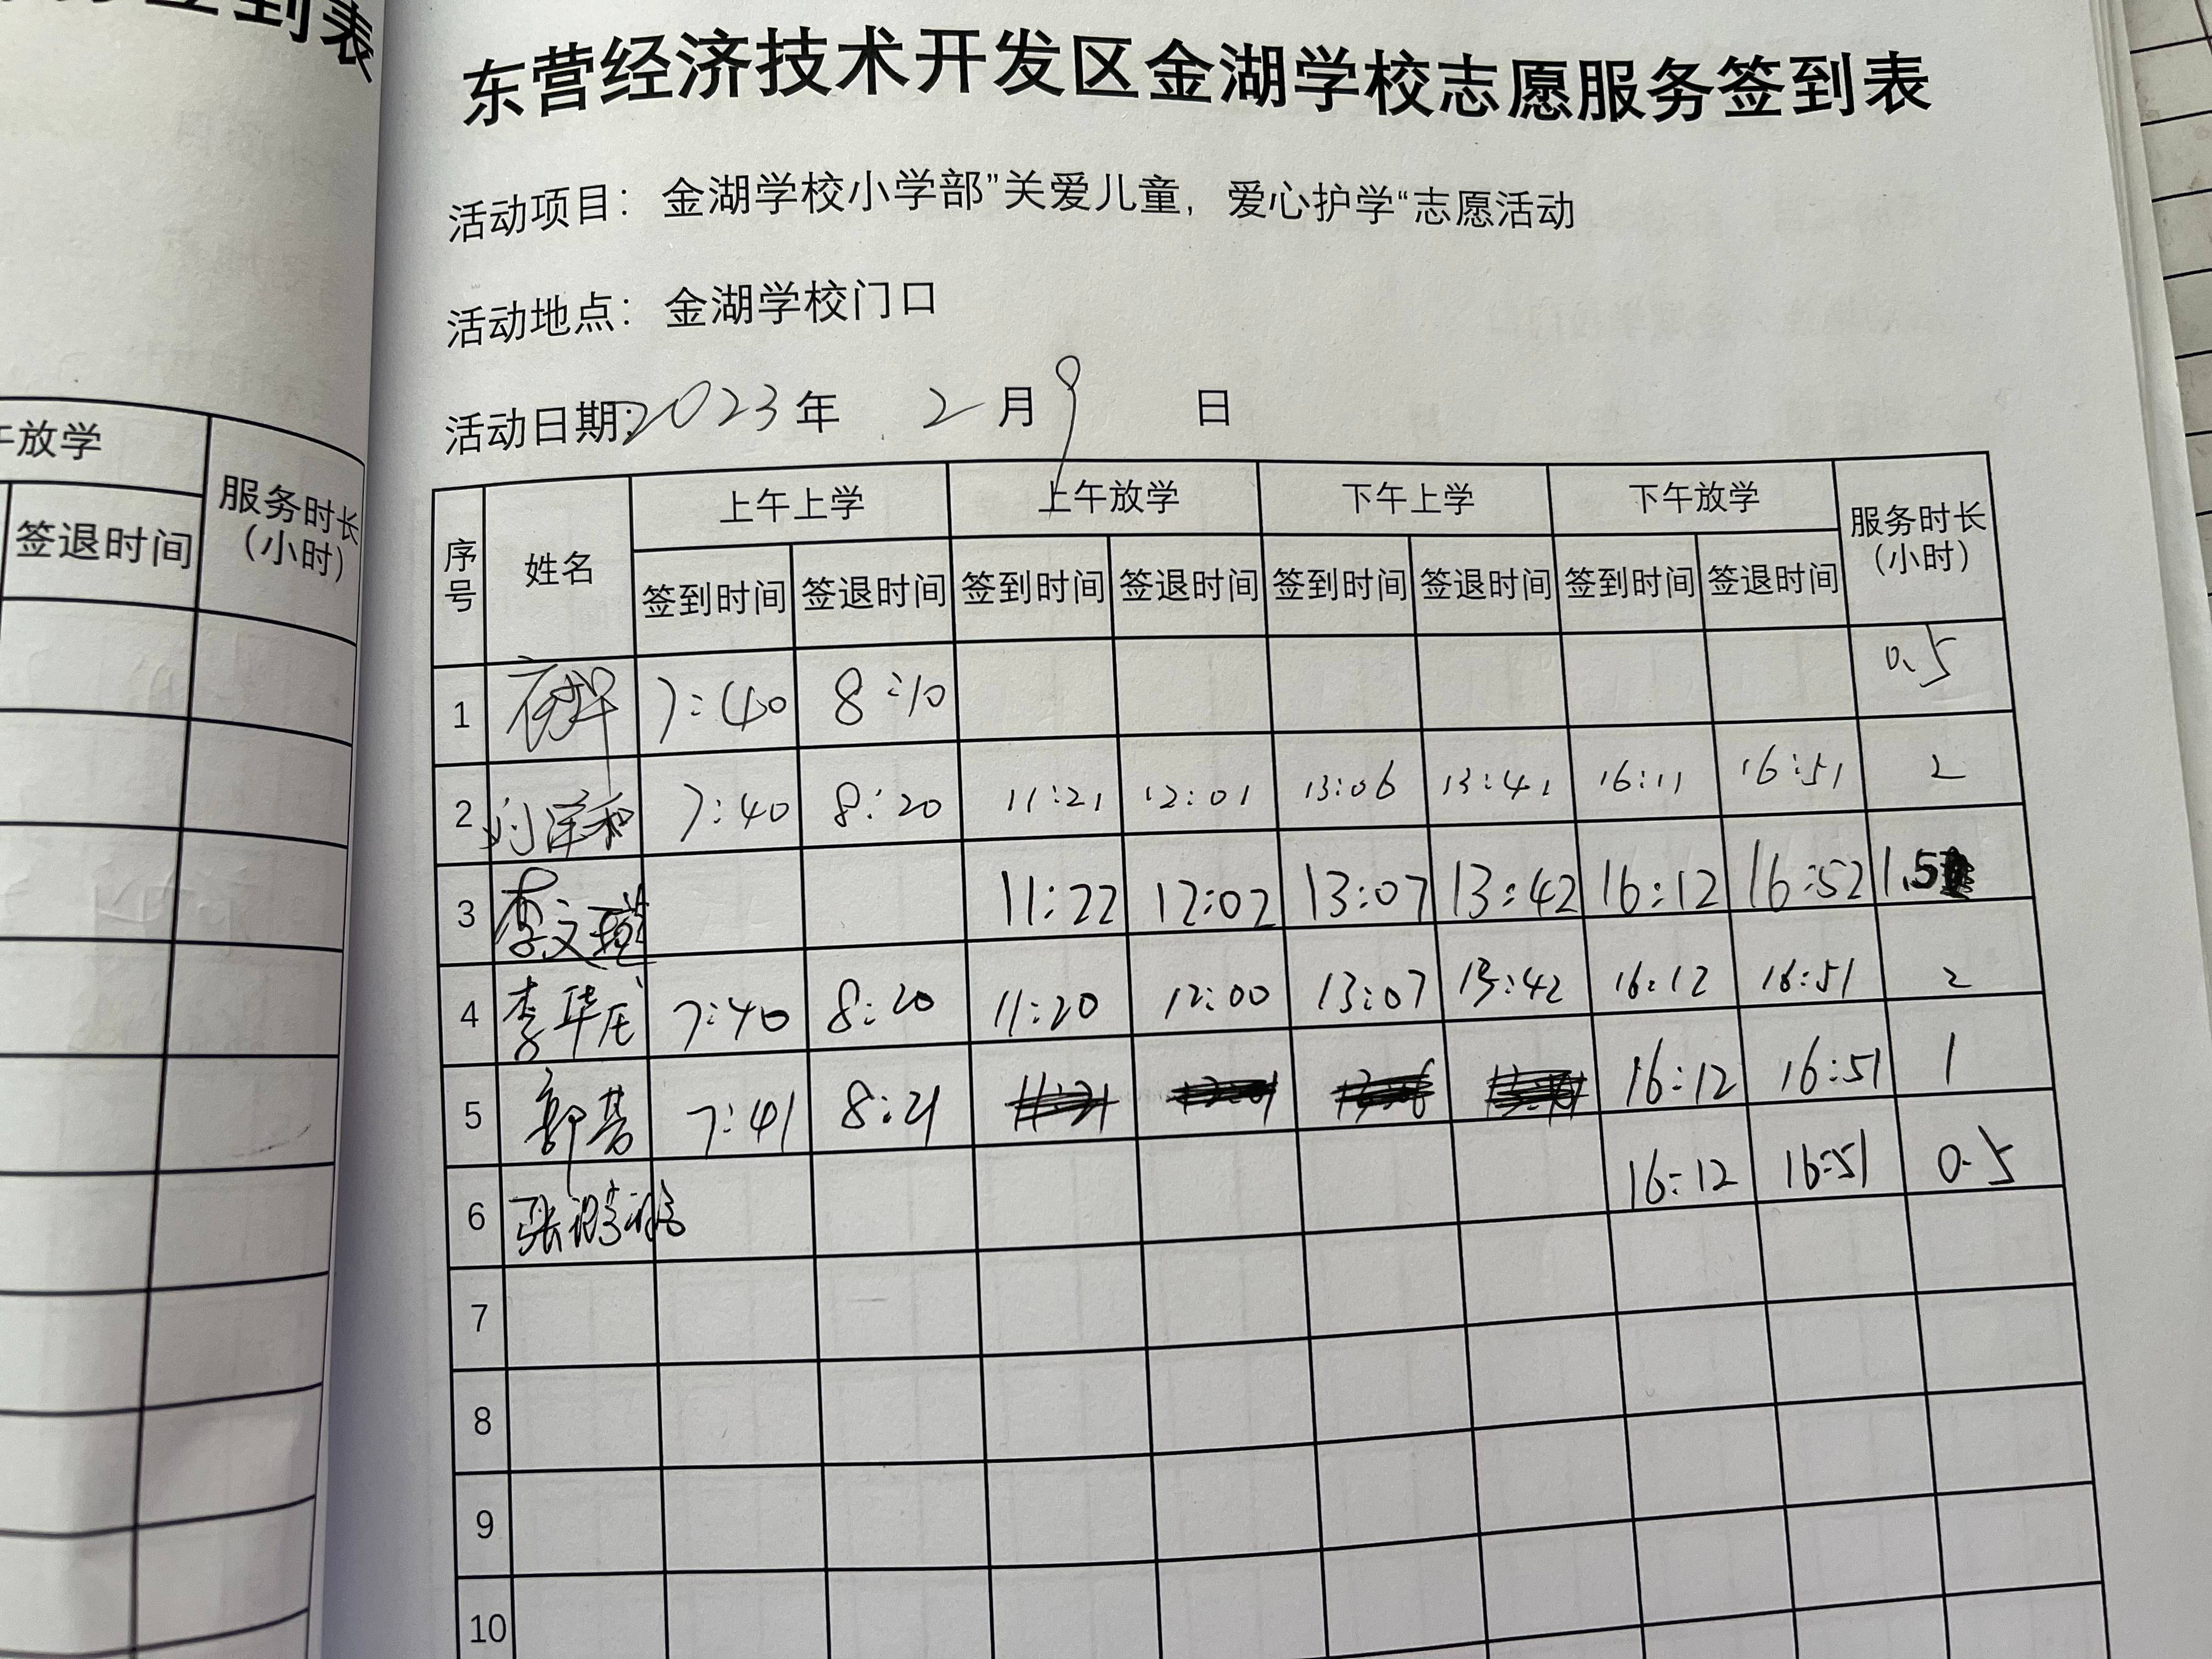 到表
午放学
服务时长
签退时间
(小时)
东营经济技术开发区金湖学校志愿服务签到表
活动项目: 金湖学校小学部"关爱儿童, 爱心护学"志愿活动
活动地点: 金湖学校门口
活动日期: 2023 年 2 月 9 日
序号 姓名 上午上学 上午放学 下午上学 下午放学 服务时长
(小时)
签到时间 签退时间 签到时间 签退时间 签到时间 签退时间 签到时间 签退时间
1 7:40 8:10 0.5
2 7:40 8:20 11:21 12:01 13:06 13:41 16:11 16:51 2
3 李文 11:22 12:02 13:07 13:42 16:12 16:52 1.5
4 李华 7:40 8:20 11:20 12:00 13:07 13:42 16:12 16:51 2
5 郭营 7:41 8:21 16:12 16:51 1
6 张 16:12 16:51 0.5
7
8
9
10